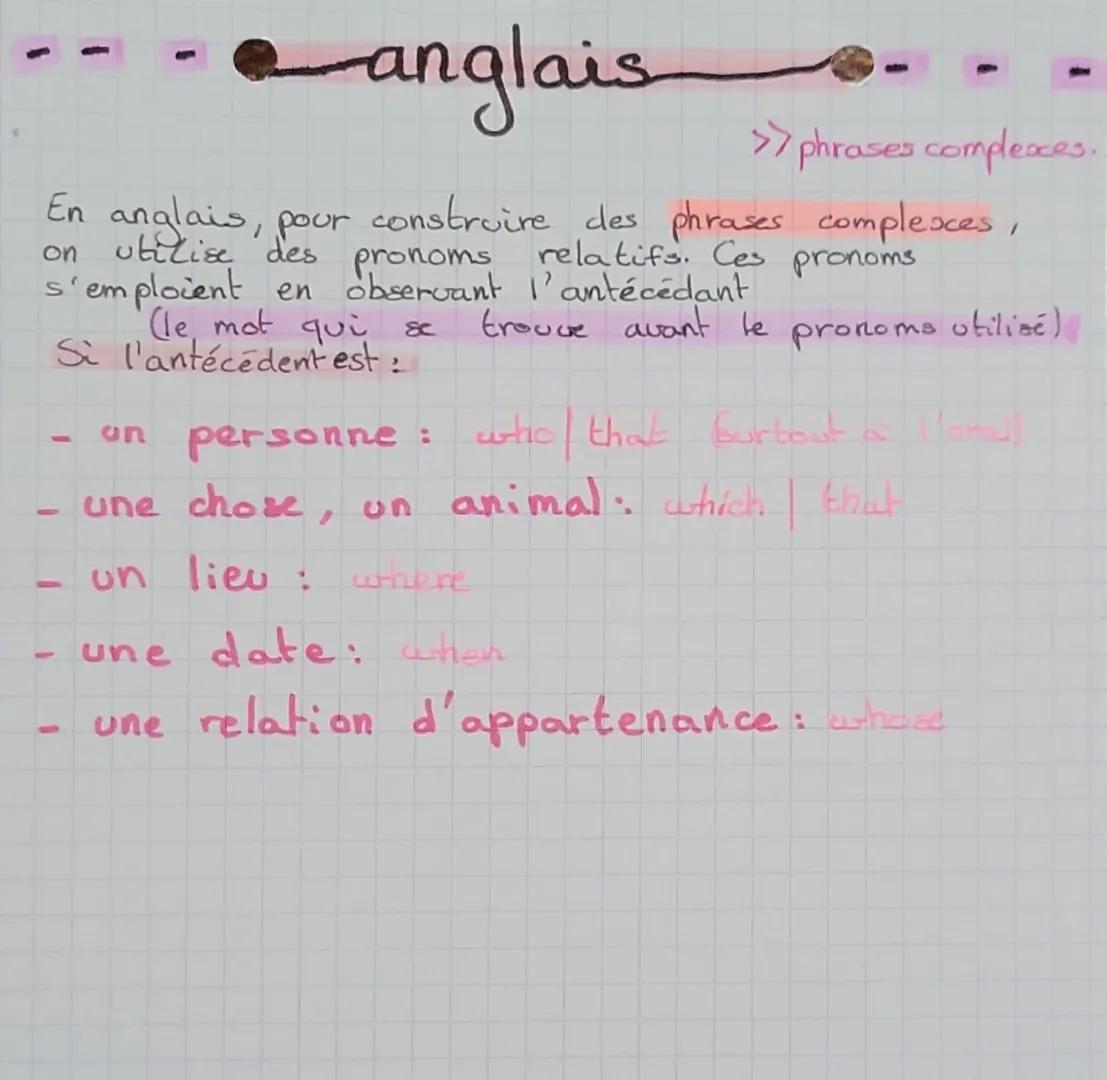 anglais
>> phrases complexes.
En anglais, pour construire des phrases complexes,
on utilise des pronoms relatifs. Ces pronoms
s'emploient en observant l'antécédant
(le mot qui se trouve avant le pronoms utilisé)
Si l'antécédent est :
- un personne : who / that (surtout à l'oral)
- une chose, un animal : which | that
- un lieu : where
- une date : when
- une relation d'appartenance : whose